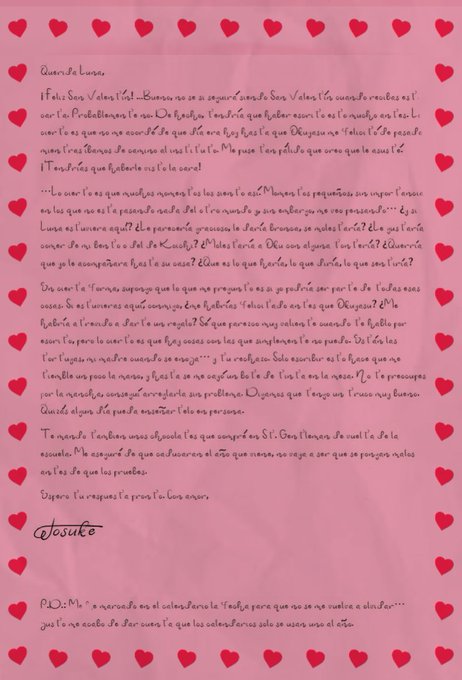 Querida Luna,
¡Feliz San Valentín! ...Bueno, no se si seguirá siendo San Valentín cuando recibas esta
carta. Probablemente no. De hecho, tendría que haber escrito esto mucho antes. Lo
cierto es que no me acordé de que día era hoy hasta que Okuyasu me felicitó de pasada
mientras íbamos de camino al instituto. Me puse tan pálido que creo que le asusté.
¡Tendrías que haberle visto la cara!
...Lo cierto es que muchos momentos los siento así. Momentos pequeños, sin importancia
en los que no esta pasando nada del otro mundo y, sin embargo, me veo pensando... ¿y si
Luna estuviera aquí? ¿Le parecería gracioso, le daría bronca, se molestaría? ¿Le gustaría
comer de mi bento o del de Koichi? ¿Molestaría a Oku con alguna tontería? ¿Querría
que yo le acompañara hasta su casa? ¿Que es lo que haría, lo que diría, lo que sentiría?
En cierta forma, supongo que lo que me pregunto es si yo podría ser parte de todas esas
cosas. Si estuvieras aquí conmigo, ¿me habrías felicitado antes que Okuyasu? ¿Me
habría atrevido a darte un regalo? Sé que parezco muy valiente cuando te hablo por
escrito, pero lo cierto es que hay cosas con las que simplemente no puedo. Están las
tortugas, mi madre cuando se enoja... y tu rechazo. Solo escribir esto hace que me
tiemble un poco la mano, y hasta se me cayó un bote de tinta en la mesa. No te preocupes
por la mancha, conseguí arreglarla sin problema. Digamos que tengo un truco muy bueno.
Quizás algún día pueda enseñartelo en persona.
Te mando tambien unos chocolates que compré en St. Gentleman de vuelta de la
escuela. Me aseguré de que caducaran el año que viene, no vaya a ser que se pongan malos
antes de que los pruebes.
Espero tu respuesta pronto. Con amor,
Josuke
P.D.: Me he marcado en el calendario la fecha para que no se me vuelva a olvidar...
justo me acabo de dar cuenta que los calendarios solo se usan uno al año.